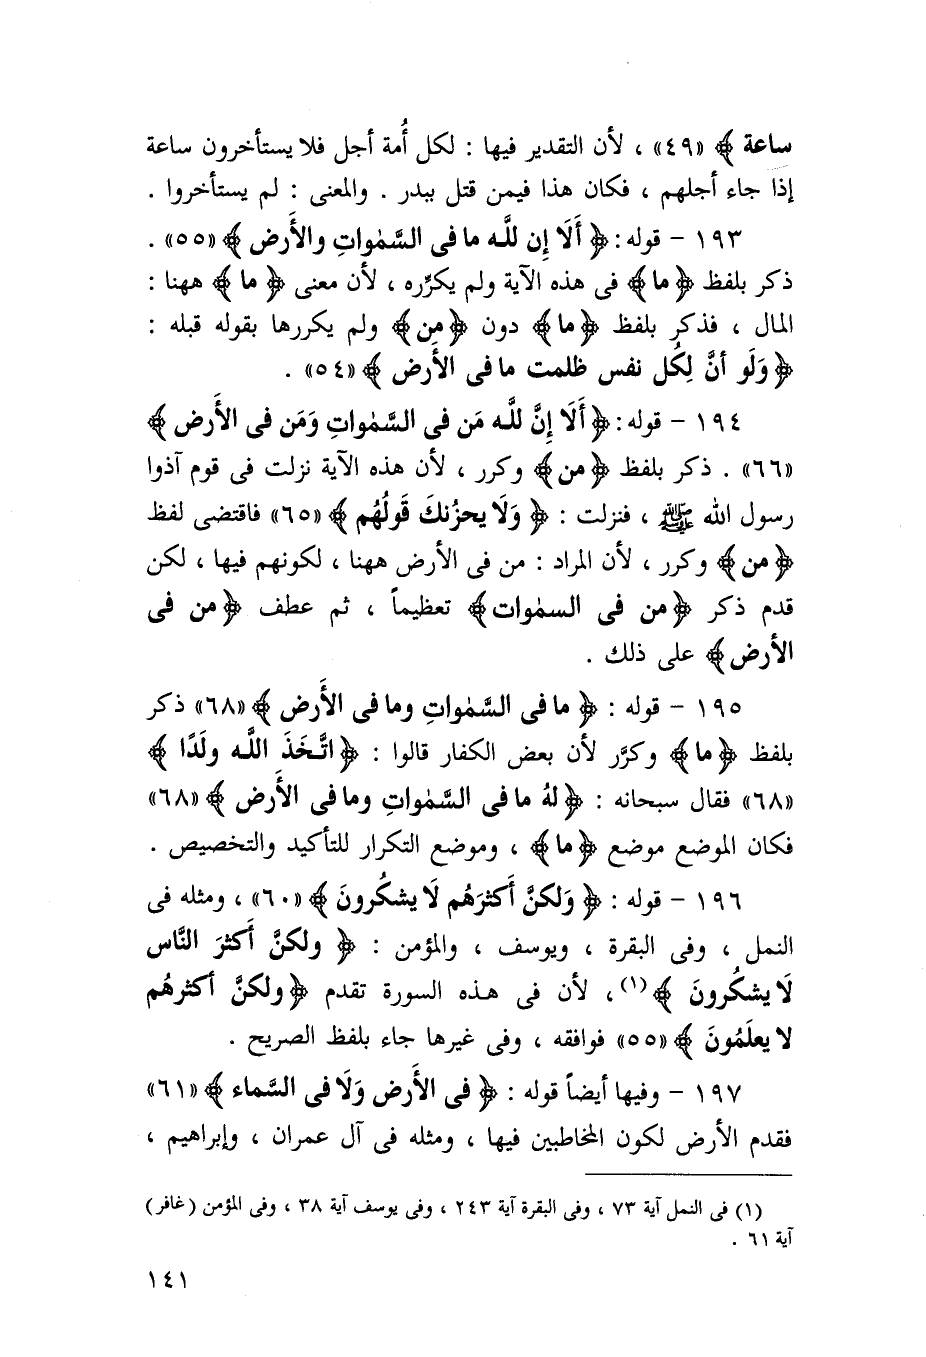 ساعة ﴾ «٤٩» ، لأن التقدير فيها : لكل أُمة أجل فلا يستأخرون ساعة
إذا جاء أجلهم ، فكان هذا فيمن قتل ببدر . والمعنى : لم يستأخروا .
١٩٣ – قوله : ﴿ أَلَا إِن للَّه ما فى السَّمٰواتِ والأَرض ﴾ «٥٥» .
ذكر بلفظ ﴿ ما ﴾ فى هذه الآية ولم يكرِّره ، لأن معنى ﴿ ما ﴾ ههنا :
المال ، فذكر بلفظ ﴿ما﴾ دون ﴿من﴾ ولم يكررها بقوله قبله :
﴿ وَلَو أنَّ لِكُل نفس ظلمت ما فى الأَرض ﴾ «٥٤» .
١٩٤ – قوله : ﴿ أَلَا إِنَّ للَّه مَن فى السَّمٰواتِ وَمَن فى الأَرض ﴾
«٦٦» . ذكر بلفظ ﴿من﴾ وكرر ، لأن هذه الآية نزلت فى قوم آذوا
رسول الله ﷺ ، فنزلت : ﴿ وَلَا يحزُنكَ قَولُهُم ﴾ «٦٥» فاقتضى لفظ
﴿ من ﴾ وكرر ، لأن المراد : من فى الأرض ههنا ، لكونهم فيها ، لكن
قدم ذكر ﴿من فى السمٰوات﴾ تعظيماً ، ثم عطف ﴿من فى
الأرض﴾ على ذلك .
١٩٥ – قوله : ﴿ ما فى السَّمٰواتِ وما فى الأَرض ﴾ «٦٨» ذكر
بلفظ ﴿ما﴾ وكرَّر لأن بعض الكفار قالوا : ﴿اتَّخَذَ اللَّه ولَدًا ﴾
«٦٨» فقال سبحانه : ﴿ لهُ ما فى السَّمٰواتِ وما فى الأَرض ﴾ «٦٨»
فكان الموضع موضع ﴿ما﴾ ، وموضع التكرار للتأكيد والتخصيص .
١٩٦ – قوله : ﴿ وَلكنَّ أَكثرَهُم لَا يشكُرونَ ﴾ «٦٠» ، ومثله فى
النمل ، وفى البقرة ، ويوسف ، والمؤمن : ﴿ ولكنَّ أَكثرَ النَّاس
لَا يشكُرونَ ﴾(١) ، لأن فى هذه السورة تقدم ﴿ولكنَّ أكثرهُم
لا يعلَمُونَ ﴾ «٥٥» فوافقه ، وفى غيرها جاء بلفظ الصريح .
١٩٧ – وفيها أيضاً قوله : ﴿ فى الأَرض وَلَا فى السَّماء ﴾ «٦١»
فقدم الأرض لكون المخاطبين فيها ، ومثله فى آل عمران ، وإبراهيم ،
(١) فى النمل آية ٧٣ ، وفى البقرة آية ٢٤٣ ، وفى يوسف آية ٣٨ ، وفى المؤمن (غافر)
آية ٦١ .
١٤١